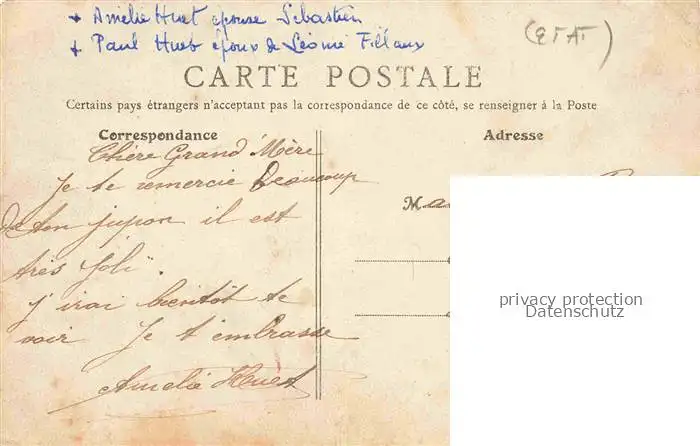 + Amélie Huet épouse Sébastien
+ Paul Huet époux de Léonie Fillaux
(ETAT)
CARTE POSTALE
Certains pays étrangers n'acceptant pas la correspondance de ce côté, se renseigner à la Poste
Correspondance
Adresse
Chère Grand Mère
Je te remercie beaucoup
de ton jupon il est
très joli.
j'irai bientôt te
voir Je t'embrasse
Amélie Huet
Ma
privacy protection
Datenschutz